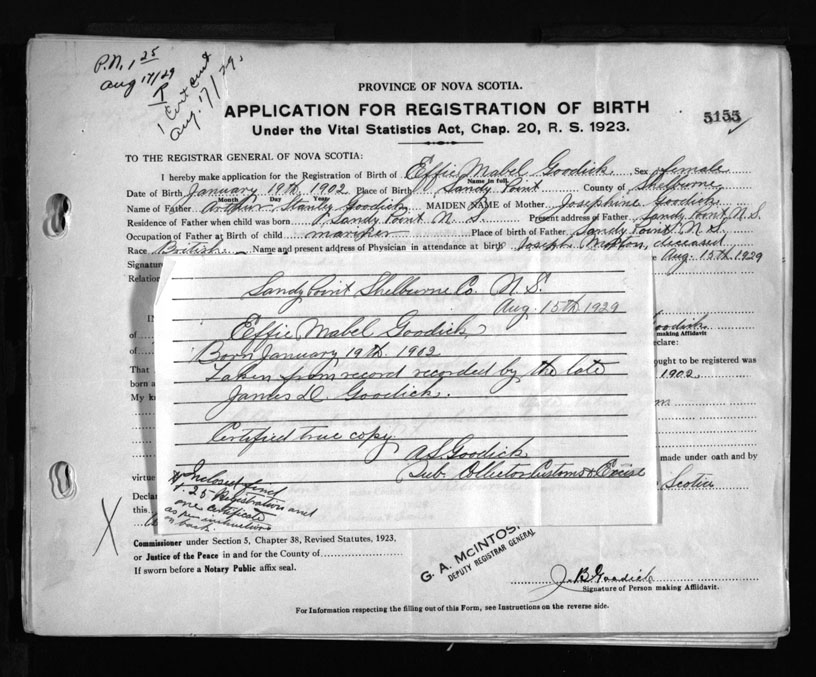 P.N. 1 25
Aug 17/29
R
1 Cert sent
Aug. 17/29.
PROVINCE OF NOVA SCOTIA.
APPLICATION FOR REGISTRATION OF BIRTH
5155
Under the Vital Statistics Act, Chap. 20, R. S. 1923.
TO THE REGISTRAR GENERAL OF NOVA SCOTIA:
I hereby make application for the Registration of Birth of Effie Mabel Goodick Sex female
Name in full
Date of Birth January 19th. 1902 Place of Birth Sandy Point County of Shelburne
Month Day Year
Name of Father Arthur Stanly Goodick MAIDEN NAME of Mother Josephine Goodick
Residence of Father when child was born Sandy Point N.S. Present address of Father Sandy Point N.S.
Occupation of Father at Birth of child mariner Place of birth of Father Sandy Point N.S.
Race British Name and present address of Physician in attendance at birth Joseph Morton, deceased
Signature Aug. 15th 1929
Relation
Sandy Point Shelburne Co. N.S.
Aug. 15th. 1929
Effie Mabel Goodick
Born January 19th. 1902
Taken from record recorded by the late
James D. Goodick.
Certified true copy
A S. Goodick
Sub. Collector Customs & Excise
Inclosed find
1.25 Registration and
one certificate
as per instructions
on back.
of Goodick
making Affidavit
of declare:
That ought to be registered was
born a 1902.
My k
made under oath and by
virtue Scotia
Decla
this
X
Commissioner under Section 5, Chapter 38, Revised Statutes, 1923.
or Justice of the Peace in and for the County of
If sworn before a Notary Public affix seal.
G. A. McINTOS
DEPUTY REGISTRAR GENERAL
J. B. Goodick
Signature of Person making Affidavit.
For Information respecting the filling out of this Form, see Instructions on the reverse side.